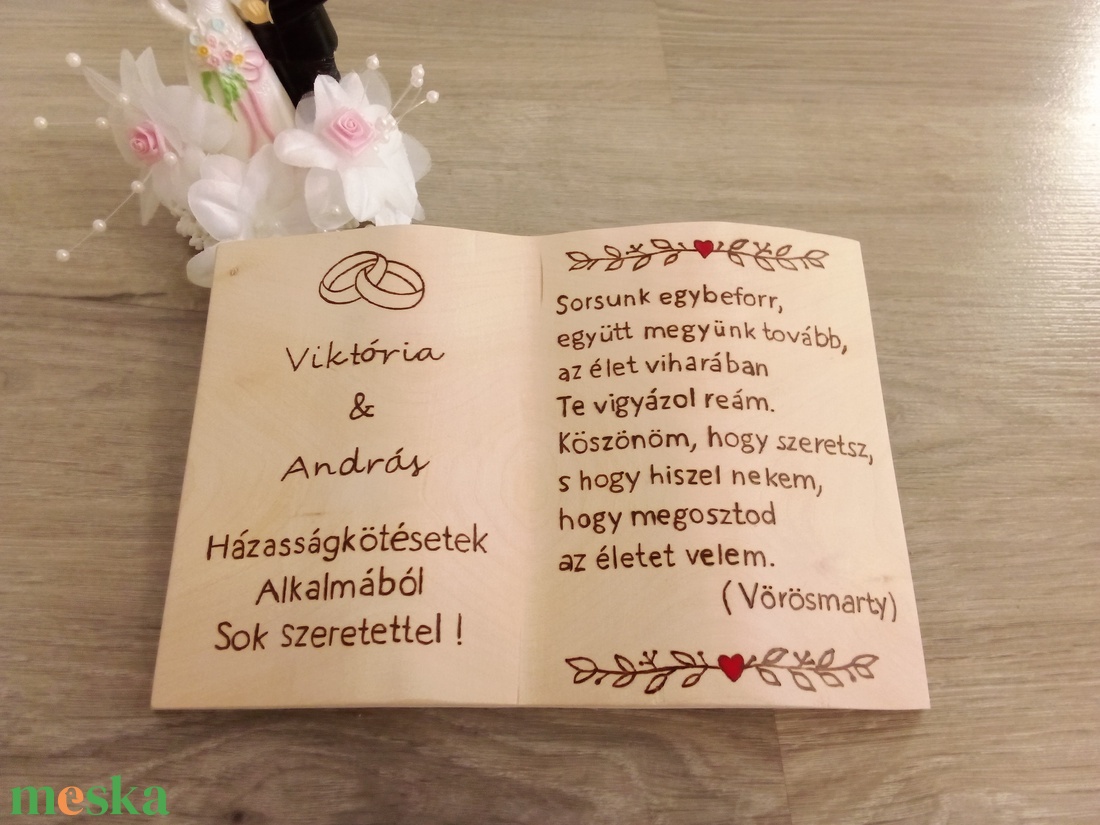 Viktória
&
András
Házasságkötésetek
Alkalmából
Sok szeretettel !
Sorsunk egybeforr,
együtt megyünk tovább,
az élet viharában
Te vigyázol reám.
Köszönöm, hogy szeretsz,
s hogy hiszel nekem,
hogy megosztod
az életet velem.
(Vörösmarty)
meska